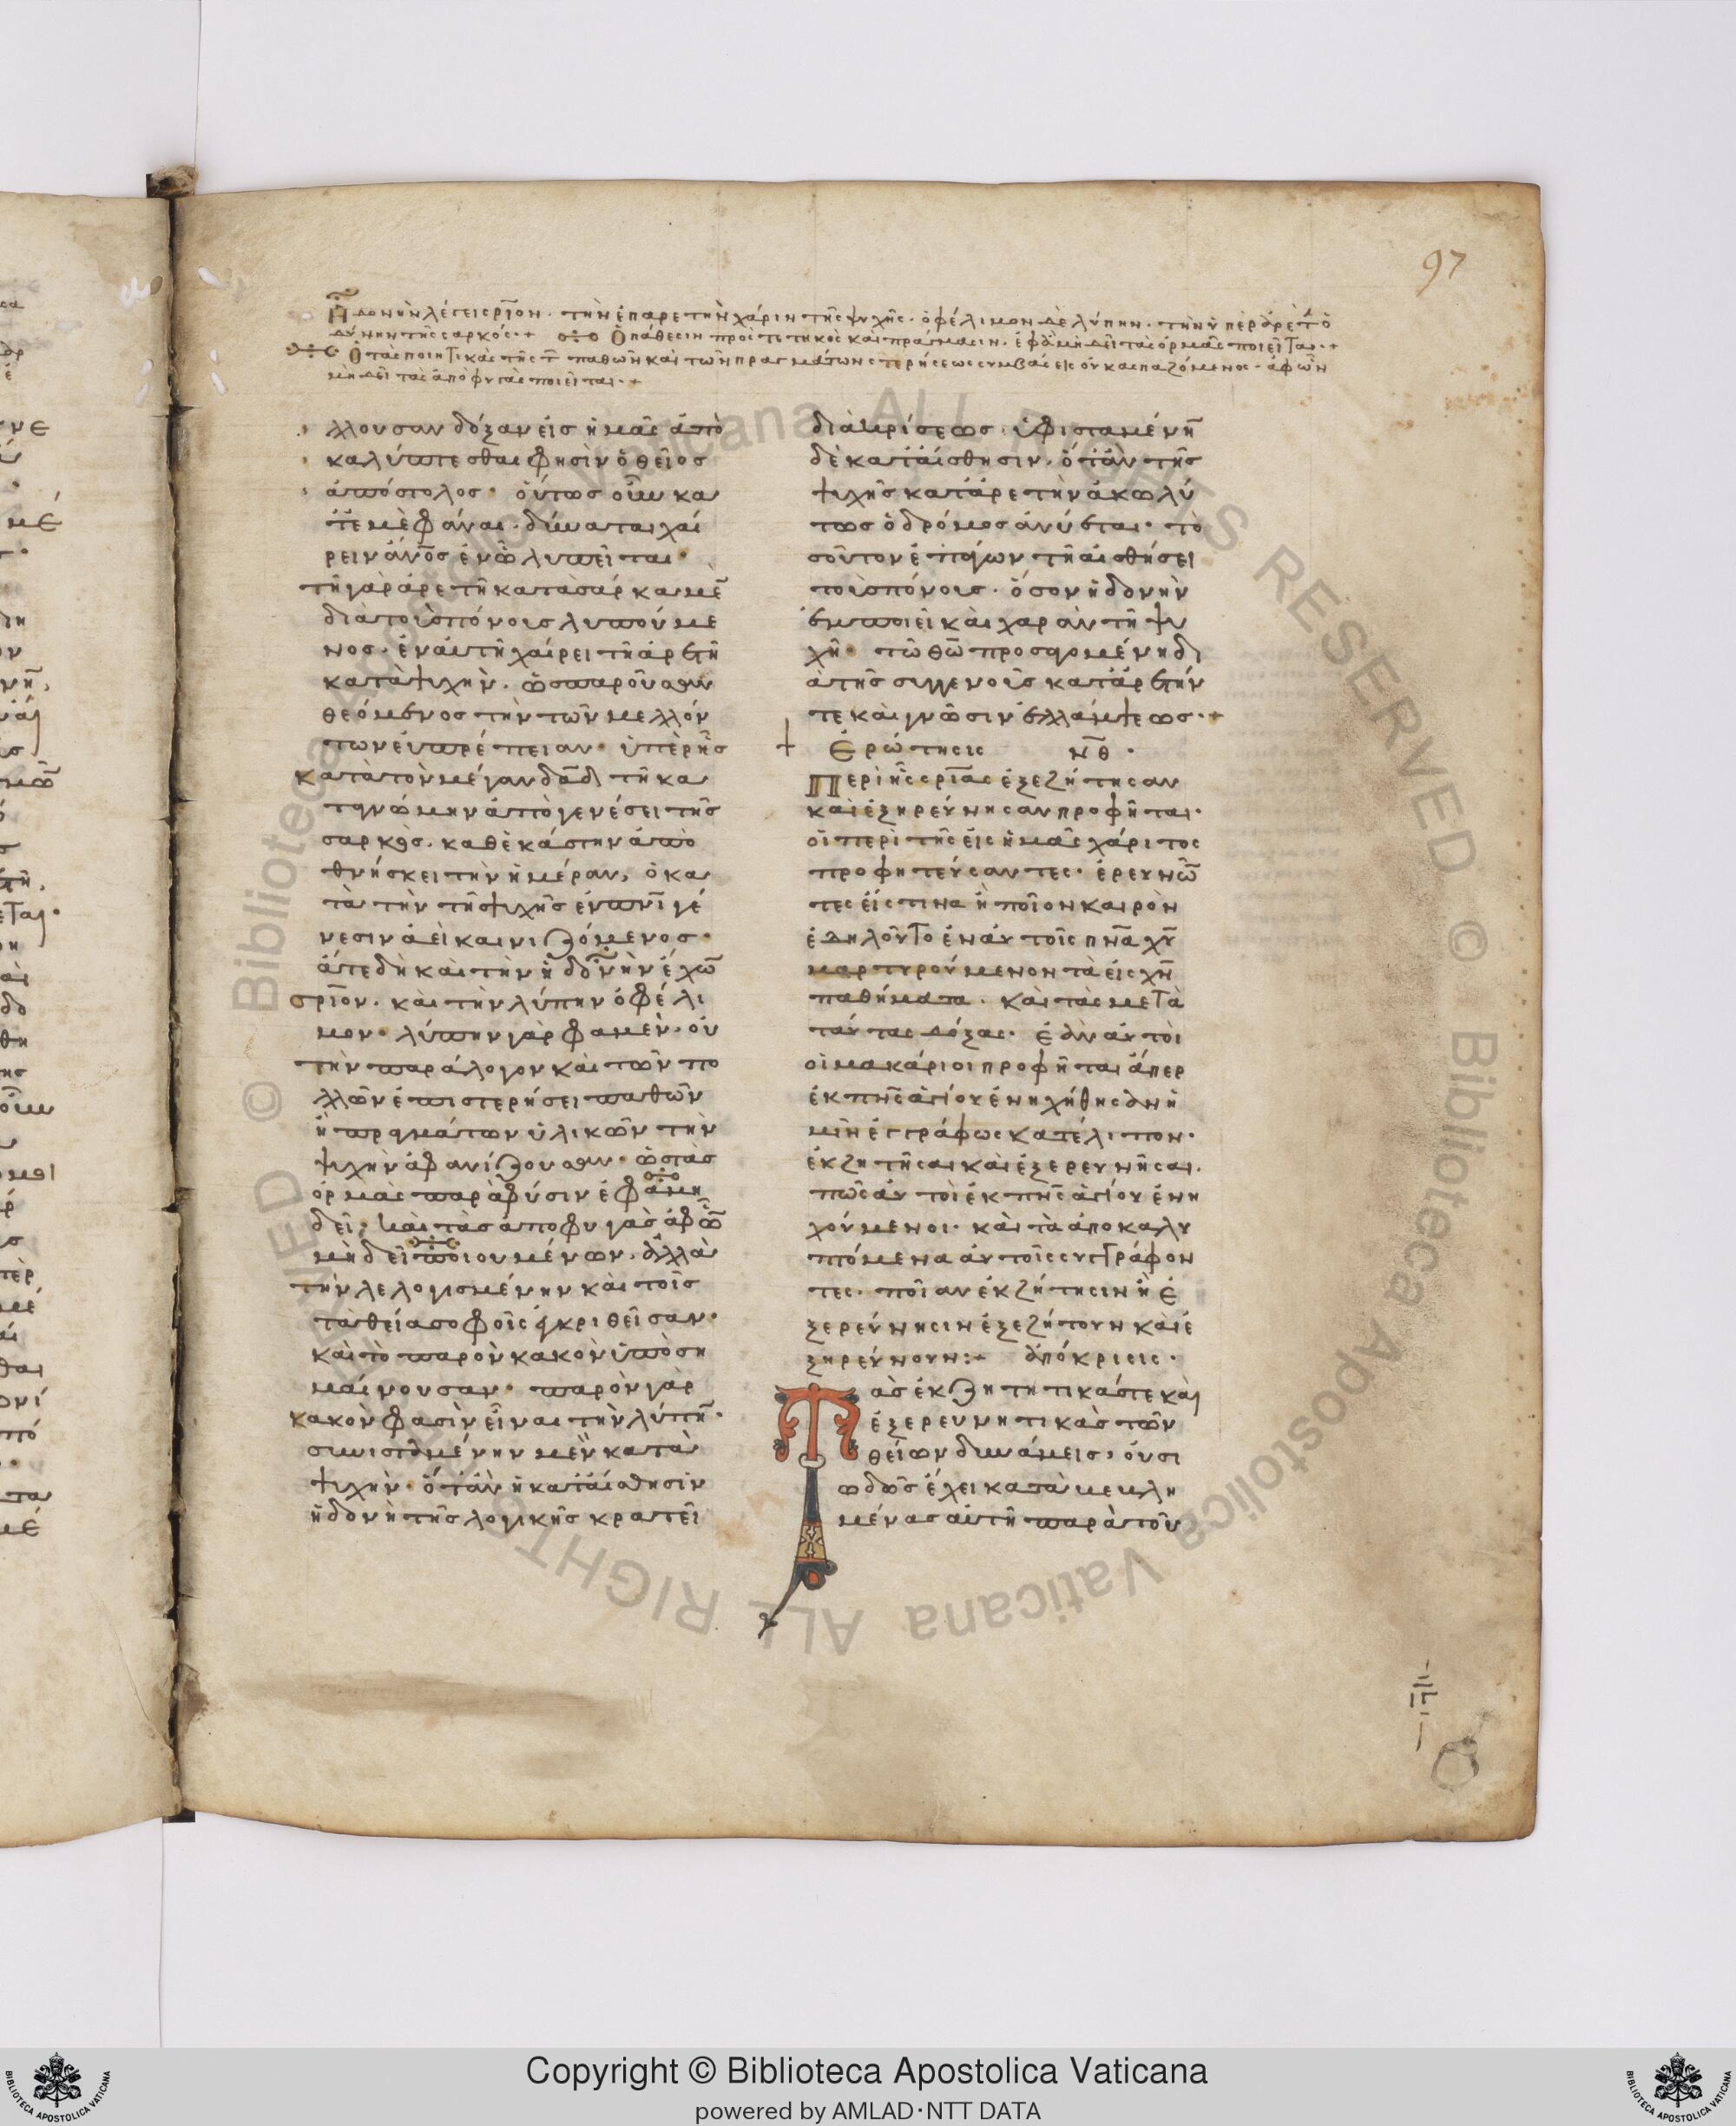 97
Ἡδονὴν λέγει σρῖον· τὴν ἐπ ἀρετὴν χάριν τῆς ψυχῆς· ὀφέλιμον δὲ λύπην· τὴν ὑπὲρ ἀρετ ὀ
δύνην τῆς σαρκός·+ Ὁ πάθεσιν προστετηκὸς καὶ πράγμασιν· ἐφ ἃ μὴ δεῖ τὰς ὁρμὰς ποιεῖται·+
Ὁ τὰς ποιητικὰς τῆς τ παθῶν καὶ τῶν πραγμάτων στερήσεως συμβάσεις οὐκ ἀσπαζόμενος· ἀφ ὧν
μὴ δεῖ τὰς ἀποφυγὰς ποιεῖται·+
λλουσαν δόξαν εἰς ἡμᾶς ἀπο
καλύπτεσθαι φησὶν ὁ θεῖος
ἀπόστολος· οὕτως οὖν κα
τ ἐμὲ φάναι· δύναται χαί
ρειν ἄνος ἐν ὧ λυπεῖται·
τῇ γὰρ ἀρετῇ κατὰ σάρκα μὲ
διὰ τοὺς πόνους λυπούμε
νος· ἐν αὐτῇ χαίρει τῇ ἀρετῇ
κατὰ ψυχὴν· ὡς παροῦσαν
θεόμενος τὴν τῶν μελλόν
των εὐπρέπειαν· ὑπὲρ ἧς
κατὰ τὸν μέγαν δᾱδ τῇ κα
τὰ γνώμην ἀπογενέσει τῆς
σαρκὸς· καθεκάστην ἀπο
θνήσκει τὴν ἡμέραν, ὁ κα
τὰ τὴν τῆς ψυχῆς ἐν πνῑ γέ
νεσιν ἀεὶ καινιζόμενος·
ἅτε δὴ καὶ τὴν ἡδονὴν ἔχω
σρῖον· καὶ τὴν λύπην ὀφέλι
μον· λύπην γὰρ φαμὲν· οὐ
τὴν παράλογον καὶ τῶν πο
λλῶν ἐπὶ στερήσει παθῶν
ἢ πραγμάτων ὑλικῶν τὴν
ψυχὴν ἀφανίζουσαν· ὡς τὰς
ὁρμὰς παρὰ φύσιν ἐφ ἃ μὴ
δεῖ· καὶ τὰς ἀποφυγὰς ἀφ ὧ
μὴ δεῖ ποιουμένων· ἀλλὰ
τὴν λελογισμένην καὶ τοῖς
τὰ θεῖα σοφοῖς ἐγκριθεῖσαν·
καὶ τὸ παρὸν κακὸν ὑποση
μαίνουσαν· παρὸν γὰρ
κακὸν φασὶν εἶναι τὴν λύπη·
συνισταμένην μὲν κατὰ
ψυχὴν· ὅτ ἂν ἡ κατ αἴσθησιν
ἡδονὴ τῆς λογικῆς κρατεῖ
διακρίσεως· ὑφισταμένη
δὲ κατ αἴσθησιν· ὅτ ἂν τῆς
ψυχῆς κατ ἀρετὴν ἀκωλύ
τως ὁ δρόμος ἀνύεται· το
σοῦτον ἐμποιῶν τῇ αἰσθήσει
τοὺς πόνους· ὅσον ἡδονὴν
ἐμποιεῖ καὶ χαρὰν τῇ ψυ
χῇ· τῶ θῶ προσαγομένη δι
ὰ τῆς συγγενοῦς κατ ἀρετήν
τε καὶ γνῶσιν ἐλλάμψεως·+
Ἐρώτησις Ν̅Θ·
Περὶ ἧς σρῖας ἐξεζήτησαν
καὶ ἐξηρεύνησαν προφῆται·
οἱ περὶ τῆς εἰς ἡμᾶς χάριτος
προφητεύσαντες· ἐρευνῶ
τες εἰς τίνα ἢ ποῖον καιρὸν
ἐδηλοῦτο ἐν αὐτοῖς πνᾱ χῡ
μαρτυρούμενον τὰ εἰς χν̄
παθήματα· καὶ τὰς μετὰ
ταύτας δόξας· ἐὰν αὐτοὶ
οἱ μακάριοι προφῆται ἅπερ
ἐκ πνς ἁγίου ἐνηχήθησαν ἡ
μῖν ἐγγράφως κατέλιπον·
ἐκζητῆσαι καὶ ἐξερευνῆσαι·
πῶς αὐτοὶ ἐκ πνς ἁγίου ἐνη
χούμενοι· καὶ τὰ ἀποκαλυ
πτόμενα αὐτοῖς συγγράφον
τες· ποῖαν ἐκζήτησιν ἢ ἐ
ξερεύνησιν ἐξεζήτουν καὶ ἐ
ξηρεύνουν:+ Ἀπόκρισις·
Τὰς ἐκζητητικάς τε καὶ
ἐξερευνητικὰς τῶν
θείων δυνάμεις, οὐσι
ωδῶς ἔχει καταβεβλη
μένας αὐτῇ παρὰ τοῦ
Copyright © Biblioteca Apostolica Vaticana
powered by AMLAD·NTT DATA